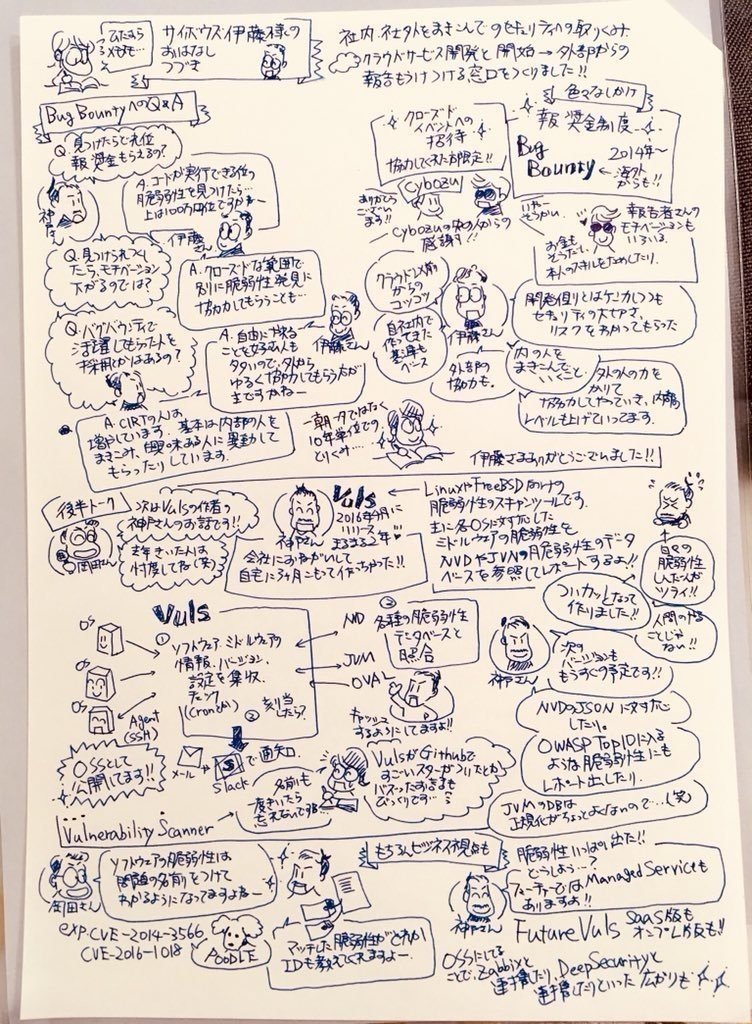 ひたすら
メモメモ…
サイボウズ伊藤様の
おはなし
つづき
社内、社外をまきこんでのセキュリティへの取りくみ
クラウドサービス開発と開始→外部からの
報告もうけつける窓口をつくりました!!
Bug BountyへのQ&A
Q.見つけたらどれ位
報奨金もらえるの?
神戸さん
A.コードが実行できる位の
脆弱性を見つけたら…
上は100万円位ですかねー
伊藤さん
Q.見つけられなく
たら、モチベーション
下がるのでは?
A.クローズドな範囲で
別に脆弱性発見に
協力してもらうことも…
Q.バグバウンティで
活躍してもらった人を
採用とかはあるの?
A.自由に
ことを好む人も
タタいので、外から
ゆるく協力してもらう方が
ますかねー
伊藤さん
A.CIRTの人は
増やしています。基本は内部の人を
まきこみ、興味ある人に異動して
もらったりしています。
色々なしかけ
クローズド
イベントへの
招待
協力してくれた方限定!!
報奨金制度
Bug
Bounty
2014年~
←海外
からも!!
ありがとう
ございます!!
Cybozu
Cybozuの中の人からの
感謝す!!
いやー
報告者さんの
モチベーションも
いろいろ。
お金も
そうだし、
本人のスキルをためしたり。
クラウド以前
からの
コツコツ
自社内で
作ってきた
基準も
ベース
伊藤さん
外部の
協力も。
開発側とはケンカしつつも
セキュリティの大切さ、
リスクをわかってもらった
内の人を
まきこんで
いくこと。
外の人の力を
かりて
協力してやっていき、内部の
レベルも上げていってます。
一朝一夕ではなく
10年単位での
とりくみ…
伊藤さまありがとうございました!!
後半トーク
岡田さん
次はVulsの作者の
神戸さんのお話です!!
去年きいた人は
忖度してね(笑)
神戸さん
Vuls
2016年4月に
リリース
まるまる2年
会社におねがいして
自宅に3ヶ月こもって作っちゃった!!
←LinuxやFreeBSD向けの
脆弱性のスキャンツールです。
主に各OSに対応した
ミドルウェアの脆弱性を
NVDやJVNの脆弱性のデータ
ベースを参照してレポートするよ!!
日々の
脆弱性
しんだんが
ツライ!!
人間のやる
ことじゃ
ない!!
ついカッとなって
作りました!!
神戸さん
次の
バージョンも
もうすぐの予定です!!
NVDのJSONに対応
したり。
OWASP Top10に入る
ような脆弱性にも
レポート出したり。
JVNのDBは
正規化がちょっとよくないので…(笑)
Vuls
OS
OS
OS
Agent
(SSH)
①
ソフトウェア、ミドルウェアの
情報、バージョン、
設定を集収、
チェック
(cronとか)
②
NVD
JVN
OVAL
③
各種の脆弱性
データベースと
照合
キャッシュ
するようにしてますよ!!
メール
Slack
で通知。
OSSとして
公開してます!!
名前も
VulsがGithubで
すごいスターがついたとか
バズったするのも
びっくりです…
Vulnerability Scanner
岡田さん
ソフトウェアの脆弱性は
問題の名前をつけて
わかるようになってますよねー
exp.CVE-2014-3566
CVE-2016-1018
POODLE
マッチした脆弱性がどれか
IDも教えてくれますよー
もちろんビジネス視点も
神戸さん
脆弱性いっぱい出た!!
どうしよう…?
フューチャーではManaged Serviceも
ありますよ!!
FutureVuls SaaS版も
オンプレ版も!!
OSSにしてる
ことで、Zabbixと
連携したり、DeepSecurityと
連携したりといった広がりも